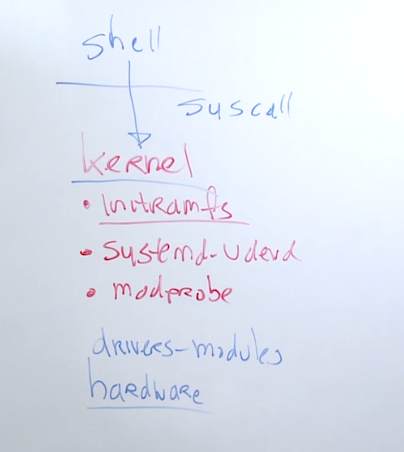 shell
syscall
kernel
• initramfs
• systemd-udevd
• modprobe
drivers-modules
hardware